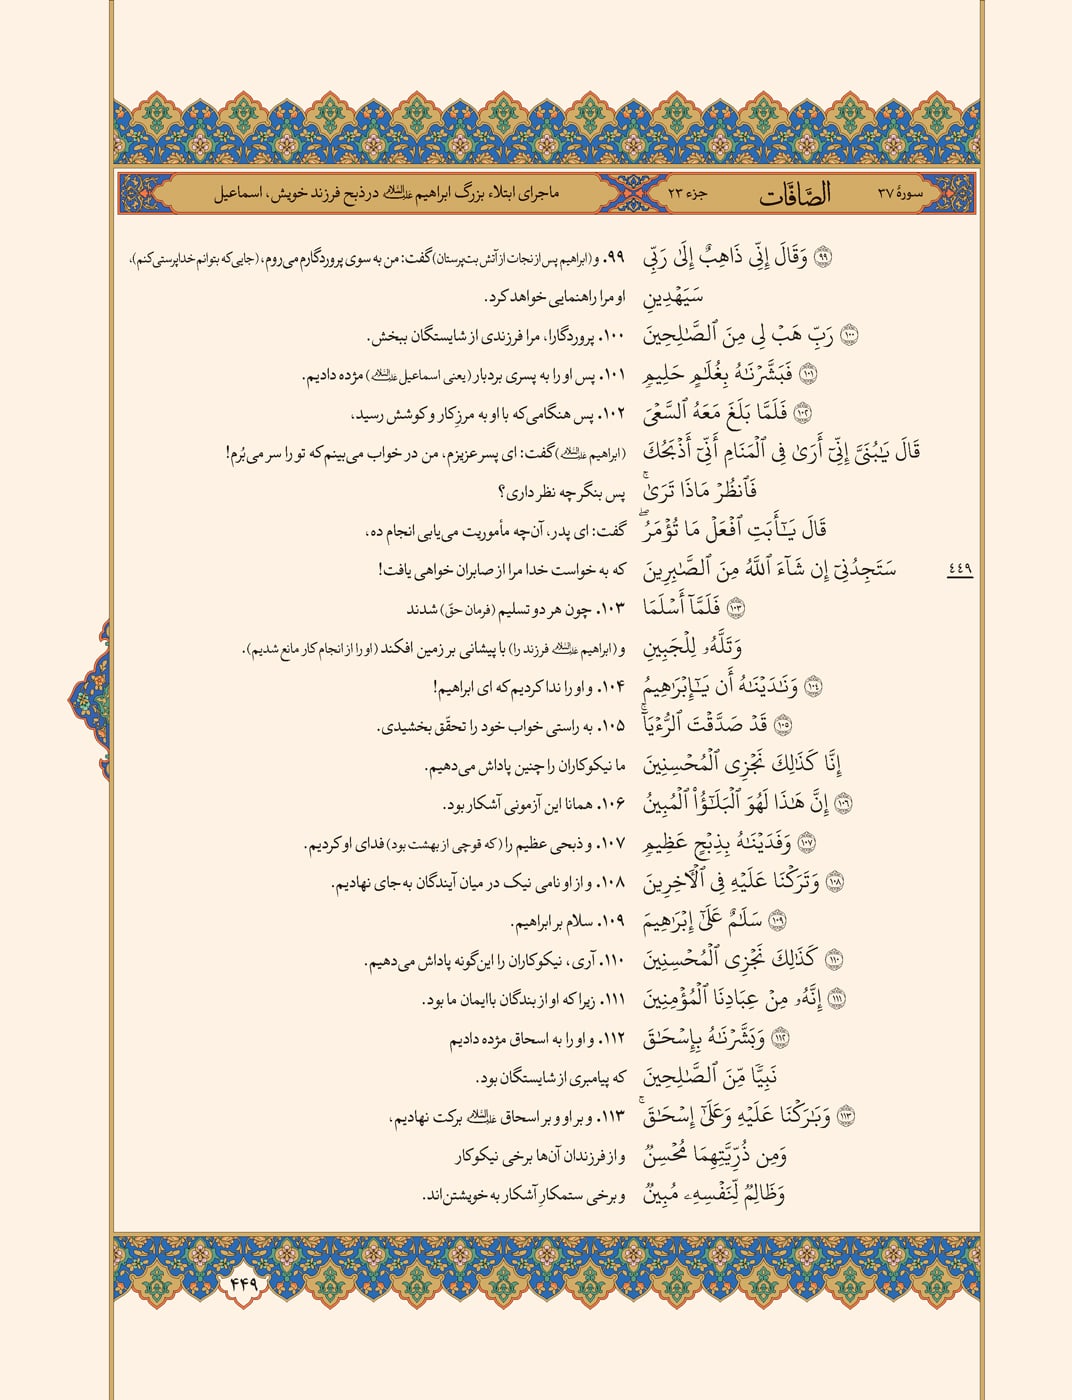 سورهٔ ۳۷ الصَّافَّات جزء ۲۳ ماجرای ابتلاء بزرگ ابراهیم علیه‌السلام در ذبح فرزند خویش، اسماعیل
۹۹ وَقَالَ إِنِّی ذَاهِبٌ إِلَىٰ رَبِّی ۹۹. و (ابراهیم پس از نجات از آتش بت‌پرستان) گفت: من به سوی پروردگارم می‌روم، (جایی که بتوانم خداپرستی کنم)،
سَیَهْدِینِ او مرا راهنمایی خواهد کرد.
۱۰۰ رَبِّ هَبْ لِی مِنَ ٱلصَّـٰلِحِینَ ۱۰۰. پروردگارا، مرا فرزندی از شایستگان ببخش.
۱۰۱ فَبَشَّرْنَـٰهُ بِغُلَـٰمٍ حَلِیمٍ ۱۰۱. پس او را به پسری بردبار (یعنی اسماعیل علیه‌السلام) مژده دادیم.
۱۰۲ فَلَمَّا بَلَغَ مَعَهُ ٱلسَّعْیَ ۱۰۲. پس هنگامی‌که با او به مرزِ کار و کوشش رسید،
قَالَ یَـٰبُنَیَّ إِنِّیٓ أَرَىٰ فِی ٱلْمَنَامِ أَنِّیٓ أَذْبَحُكَ (ابراهیم علیه‌السلام) گفت: ای پسر عزیزم، من در خواب می‌بینم‌که تو را سر می‌بُرم!
فَٱنظُرْ مَاذَا تَرَىٰ ۚ پس بنگر چه نظر داری؟
قَالَ یَـٰٓأَبَتِ ٱفْعَلْ مَا تُؤْمَرُ ۖ گفت: ای پدر، آن‌چه مأموریت می‌یابی انجام ده،
سَتَجِدُنِیٓ إِن شَآءَ ٱللَّهُ مِنَ ٱلصَّـٰبِرِینَ که به خواست خدا مرا از صابران خواهی یافت!
٤٤٩
۱۰۳ فَلَمَّآ أَسْلَمَا ۱۰۳. چون هر دو تسلیم (فرمان حقّ) شدند
وَتَلَّهُۥ لِلْجَبِینِ و (ابراهیم علیه‌السلام فرزند را) با پیشانی بر زمین افکند (او را از انجام کار مانع شدیم).
۱۰۴ وَنَـٰدَیْنَـٰهُ أَن یَـٰٓإِبْرَٰهِیمُ ۱۰۴. و او را ندا کردیم‌که ای ابراهیم!
۱۰۵ قَدْ صَدَّقْتَ ٱلرُّءْیَآ ۚ ۱۰۵. به راستی خواب خود را تحقّق بخشیدی.
إِنَّا كَذَٰلِكَ نَجْزِی ٱلْمُحْسِنِینَ ما نیکوکاران را چنین پاداش می‌دهیم.
۱۰۶ إِنَّ هَـٰذَا لَهُوَ ٱلْبَلَـٰٓؤُا۟ ٱلْمُبِینُ ۱۰۶. همانا این آزمونی آشکار بود.
۱۰۷ وَفَدَیْنَـٰهُ بِذِبْحٍ عَظِیمٍ ۱۰۷. و ذبحی عظیم را (که قوچی از بهشت بود) فدای او کردیم.
۱۰۸ وَتَرَكْنَا عَلَیْهِ فِی ٱلْـَٔاخِرِینَ ۱۰۸. و از او نامی نیک در میان آیندگان به‌جای نهادیم.
۱۰۹ سَلَـٰمٌ عَلَىٰٓ إِبْرَٰهِیمَ ۱۰۹. سلام بر ابراهیم.
۱۱۰ كَذَٰلِكَ نَجْزِی ٱلْمُحْسِنِینَ ۱۱۰. آری، نیکوکاران را این‌گونه پاداش می‌دهیم.
۱۱۱ إِنَّهُۥ مِنْ عِبَادِنَا ٱلْمُؤْمِنِینَ ۱۱۱. زیرا که او از بندگان باایمان ما بود.
۱۱۲ وَبَشَّرْنَـٰهُ بِإِسْحَـٰقَ ۱۱۲. و او را به اسحاق مژده دادیم
نَبِیًّا مِّنَ ٱلصَّـٰلِحِینَ که پیامبری از شایستگان بود.
۱۱۳ وَبَـٰرَكْنَا عَلَیْهِ وَعَلَىٰٓ إِسْحَـٰقَ ۚ ۱۱۳. و بر او و بر اسحاق علیه‌السلام برکت نهادیم،
وَمِن ذُرِّیَّتِهِمَا مُحْسِنٌ و از فرزندان آن‌ها برخی نیکوکار
وَظَالِمٌ لِّنَفْسِهِۦ مُبِینٌ و برخی ستمکارِ آشکار به خویشتن‌اند.
۴۴۹